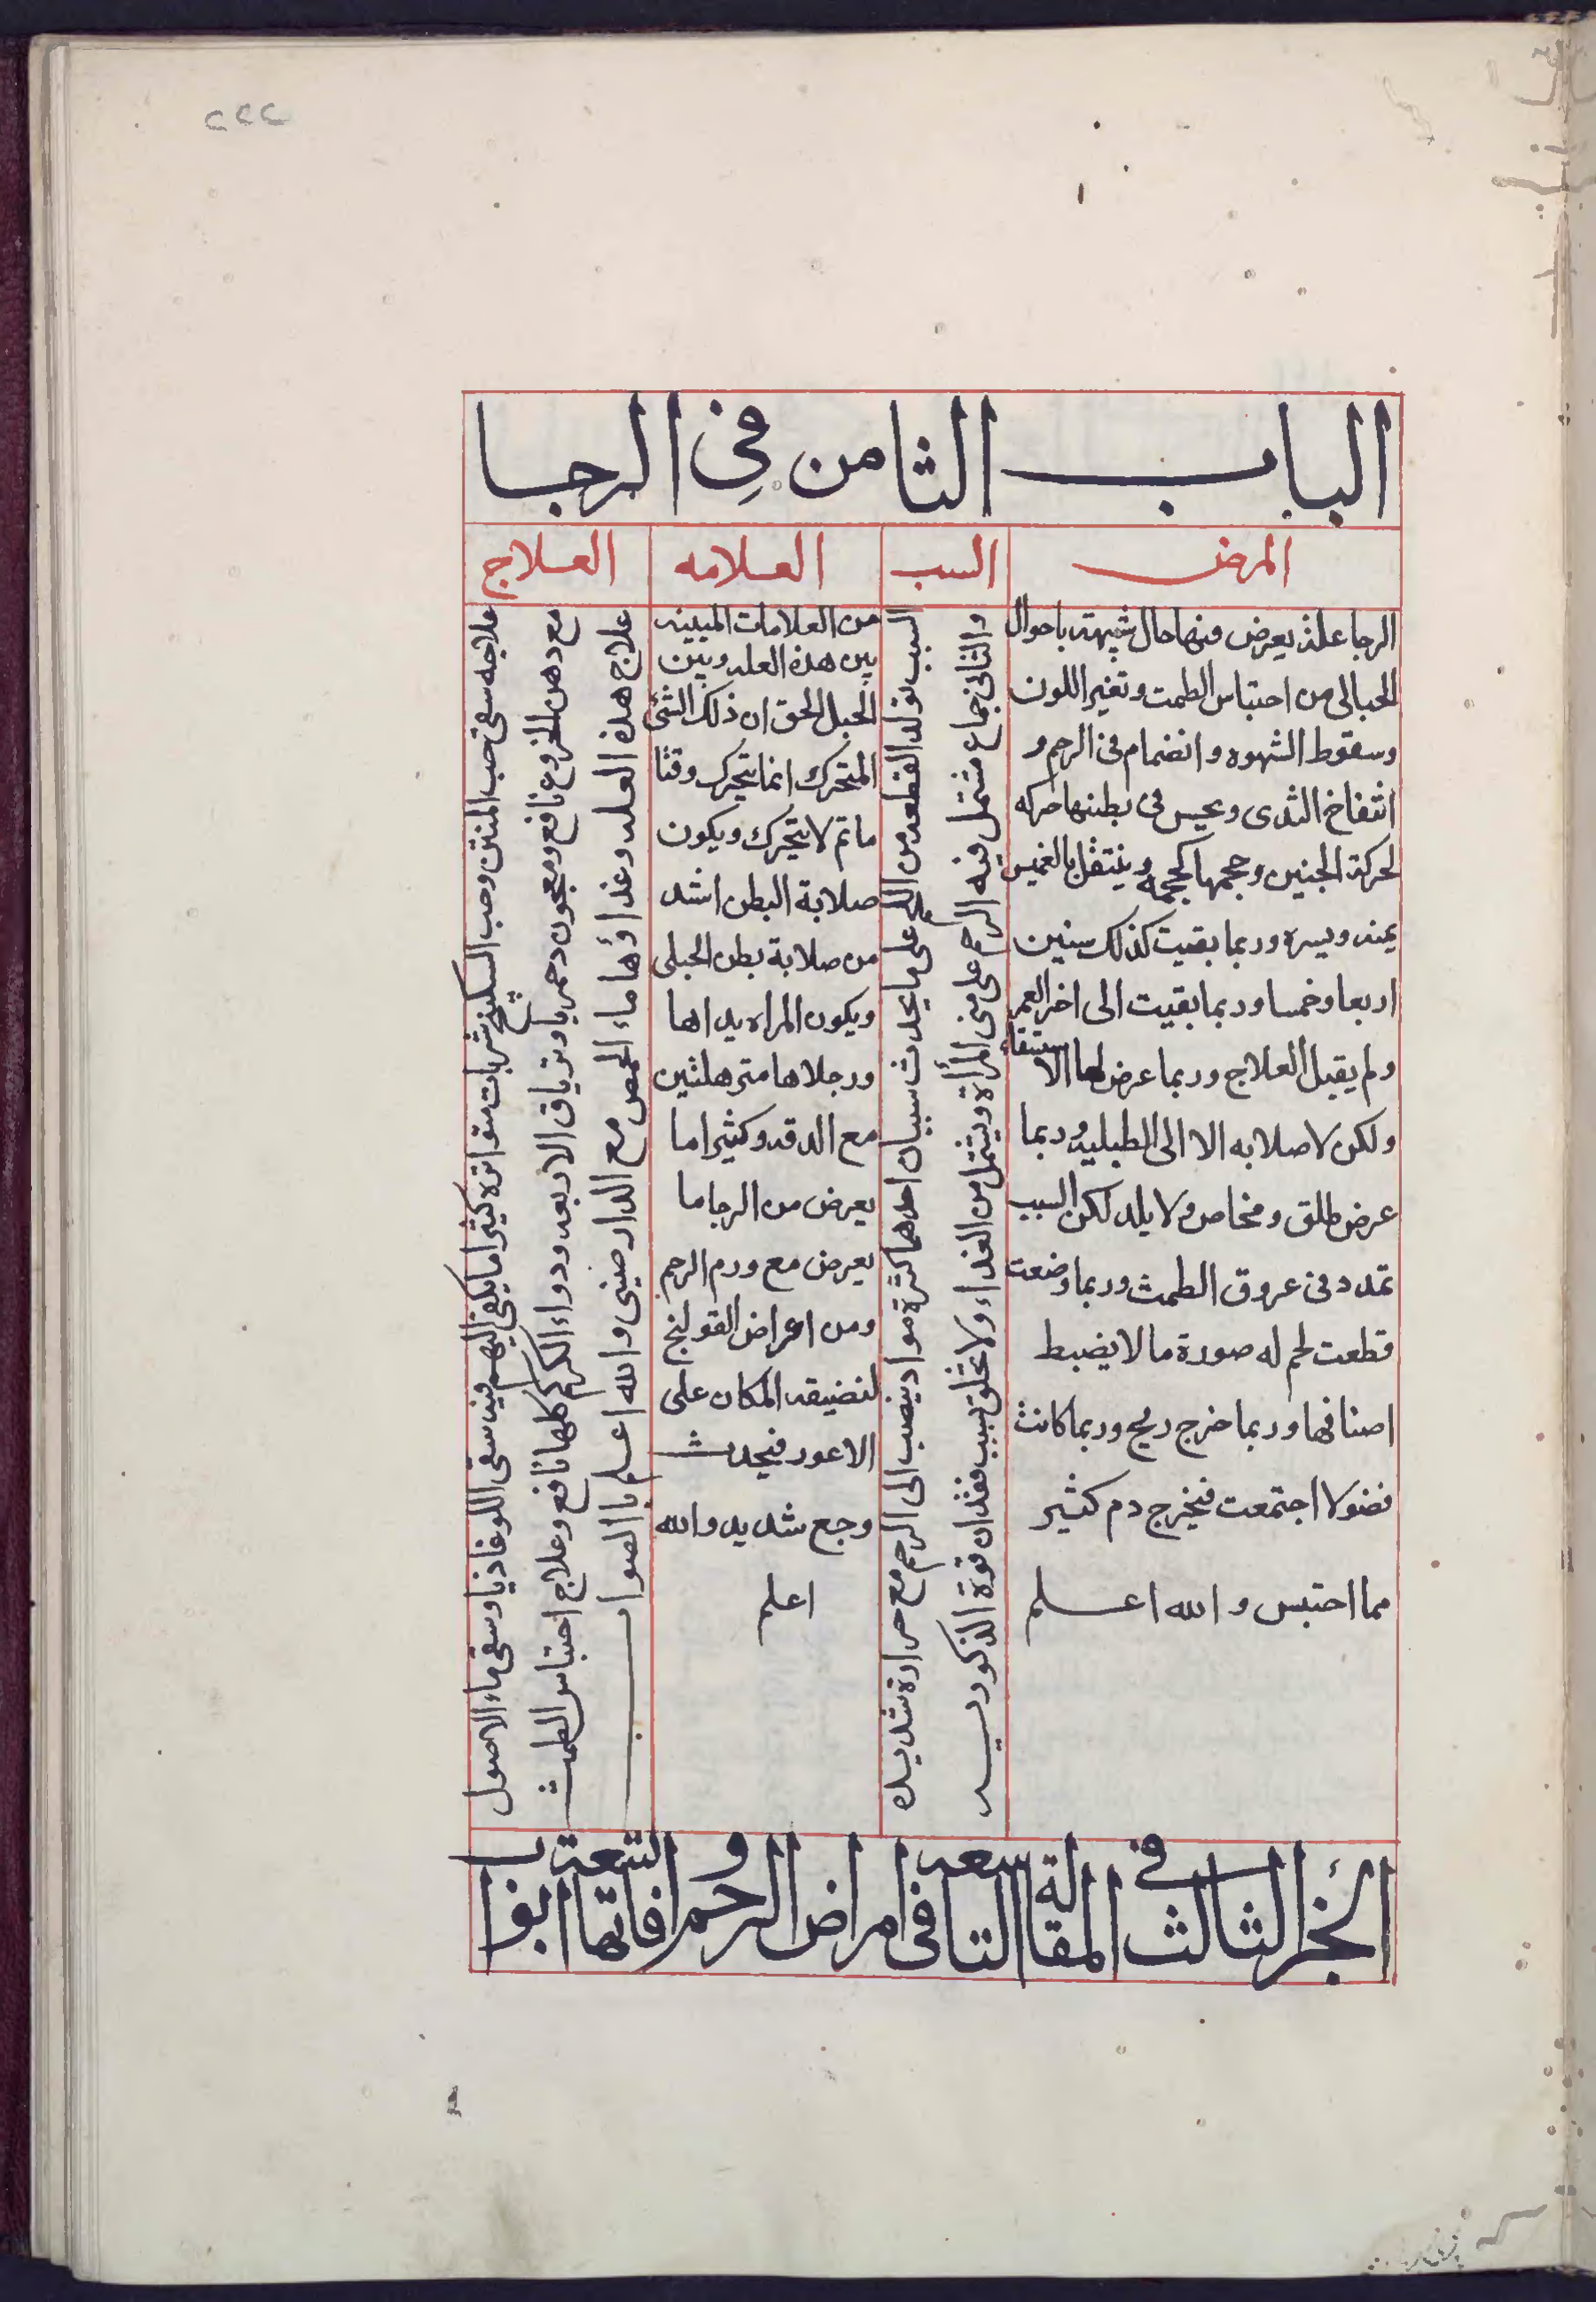 ٢٢٢
الباب الثامن في الرجا
المرض
السبب
العلامه
العلاج
الرجا علة يعرض منها حال شبيهة باحوال
الحبالى من احتباس الطمث وتغير اللون
وسقوط الشهوه وانضمام فى الرحم و
انتفاخ الثدى ويحس فى بطنها حركه
كحركة الجنين وحجمها كحجمه وينتقل بالغمس
يمنه ويسره وربما بقيت كذلك سنين
اربعا وخمسا وربما بقيت الى اخر العمر
ولم يقبل العلاج وربما عرض لها الاستسقاء
ولكن لا صلابه الا الى الطبليه وربما
عرض طلق ومخاض ولا يلد لكن السبب
تمدد فى عروق الطمث وربما وضعت
قطعت لحم له صورة ما لا يضبط
اصنافها وربما خرج ريح وربما كانت
فضولا اجتمعت فيخرج دم كثير
مما احتبس والله اعلم
السبب تولد القطعه من اللحم على ما يحدث سببان احدهما كثرة مواد ينصب الى الرحم مع حرارة شديده
والثانى جماع مشتمل فيه الرحم على منى المرأة ويشتمل من الغداء ولا يخلق بسبب فقدان قوة الذكوريه
من العلامات المبينه
بين هذه العله وبين
الحبل الحق ان ذلك الشئ
المتحرك انما يتحرك وقتا
ما ثم لا يتحرك ويكون
صلابة البطن اشد
من صلابة بطن الحبلى
ويكون المراه يداها
ورجلاها مترهلتين
مع الدقه وكثيرا ما
يعرض من الرجا ما
يعرض مع ورم الرحم
ومن اعراض القولنج
لتضيقه المكان على
الاعور فيحدث
وجع شديد والله
اعلم
علاجه سقى حب المنتن وحب السكبينج شربات متواتره كثيرا ما يكفى المهم فيه سقى اللوغاذيا وسقى ماء الاصول
مع دهن الخروع نافع ومعجون دحمرثا وترياق الاربعه ودواء الكركم كلها نافع وعلاج احتباس الطمث
علاج هذه العله وغذاؤها ماء الحمص مع الدارصينى والله اعلم باالصواب
الجزء الثالث فى المقالة التاسعه فى امراض الرحم وافاتها التسعة ابواب